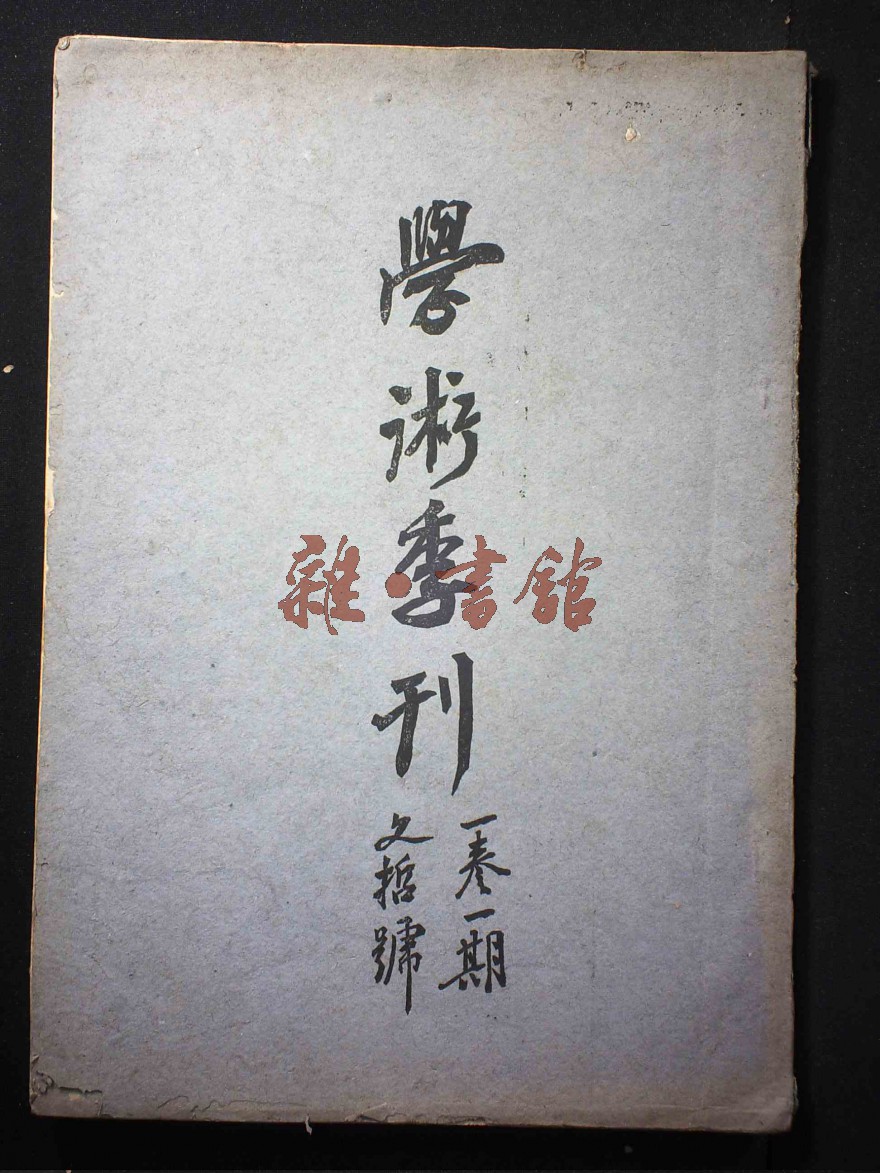 學術季刊
一卷一期
文哲號
雜·書館